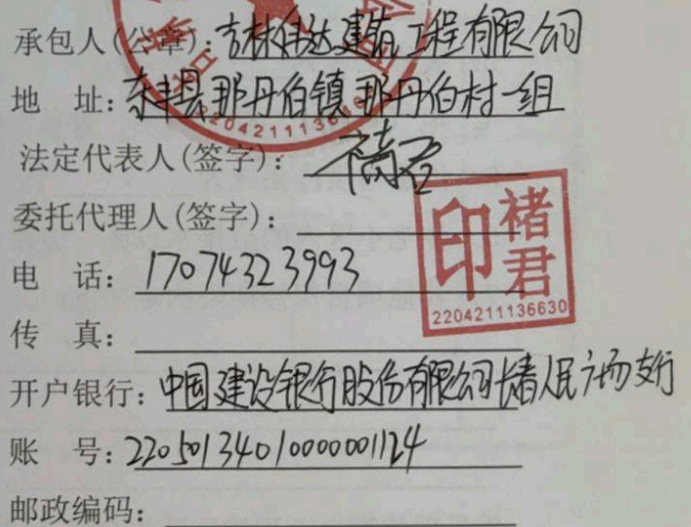 承包人(公章): 吉林伟达建筑工程有限公司
地 址: 东丰县那丹伯镇那丹伯村一组
2204211113
法定代表人(签字): 褚君
委托代理人(签字):
褚君
印
2204211136630
电 话: 17074323993
传 真:
开户银行: 中国建设银行股份有限公司长春人民广场支行
账 号: 22050134010000001124
邮政编码: